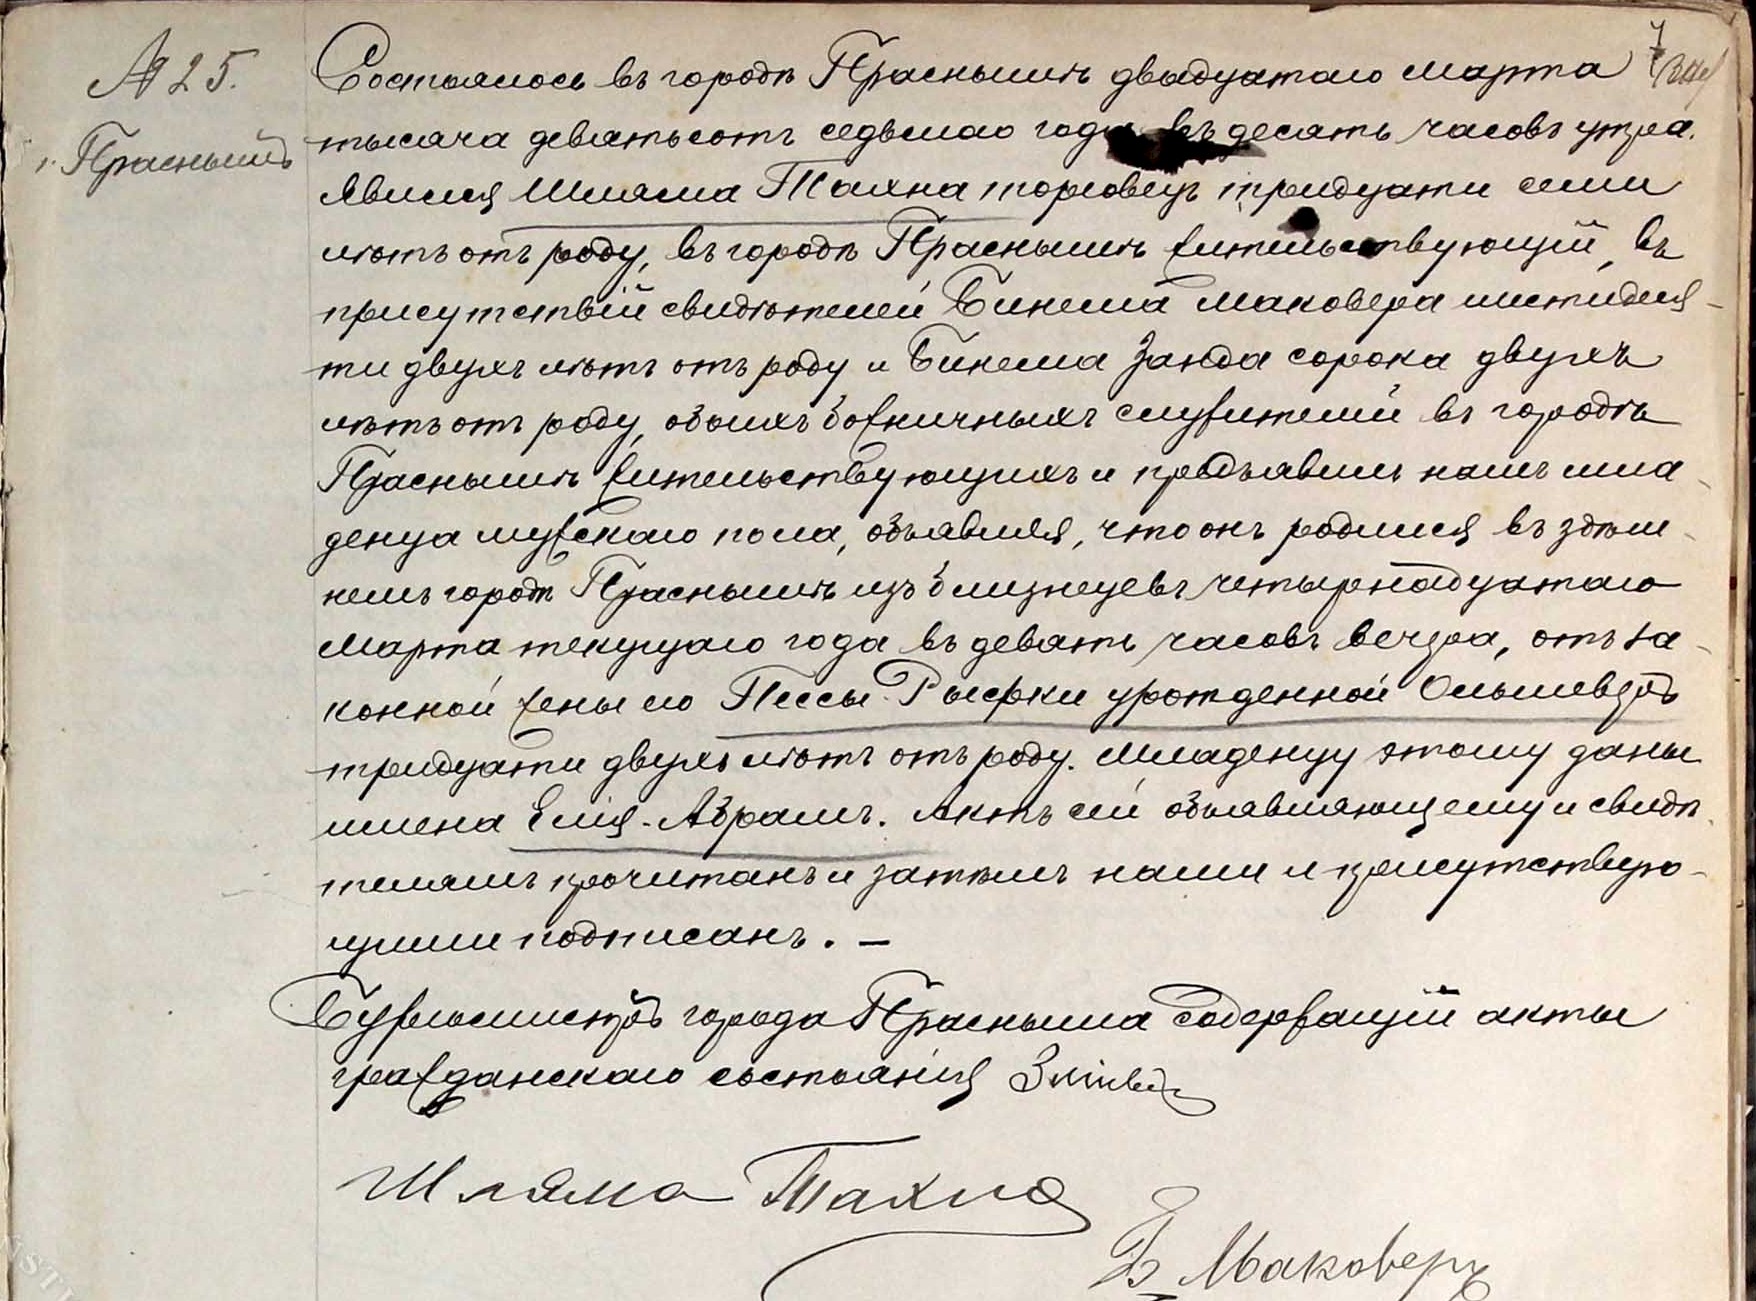 № 25.
г. Праснышъ
Состоялось въ городѣ Праснышѣ двадцатаго марта
тысяча девятьсотъ седьмаго года въ десять часовъ утра.
Явился Шляма Тахна торговецъ тридцати семи
лѣтъ отъ роду, въ городѣ Праснышѣ жительствующій, въ
присутствіи свидѣтелей Бинема Маковера шестидеся-
ти двухъ лѣтъ отъ роду и Бинема Занда сорока двухъ
лѣтъ отъ роду, обоихъ божничныхъ служителей въ городѣ
Праснышѣ жительствующихъ и предъявилъ намъ мла-
денца мужскаго пола, объявляя, что онъ родился въ здѣш-
немъ городѣ Праснышѣ изъ близнецевъ четырнадцатаго
Марта текущаго года въ девять часовъ вечера, отъ за-
конной жены его Пессы-Рыфки урожденной Ольшеверъ
тридцати двухъ лѣтъ отъ роду. Младенцу этому даны
имена Елія-Абрамъ. Актъ сей объявляющему и свидѣ-
телямъ прочитанъ и затѣмъ нами и присутствую-
щими подписанъ. —
Бургомистръ города Прасныша Содержащій акты
гражданскаго состоянія
Шляма Тахна
Б Маковеръ